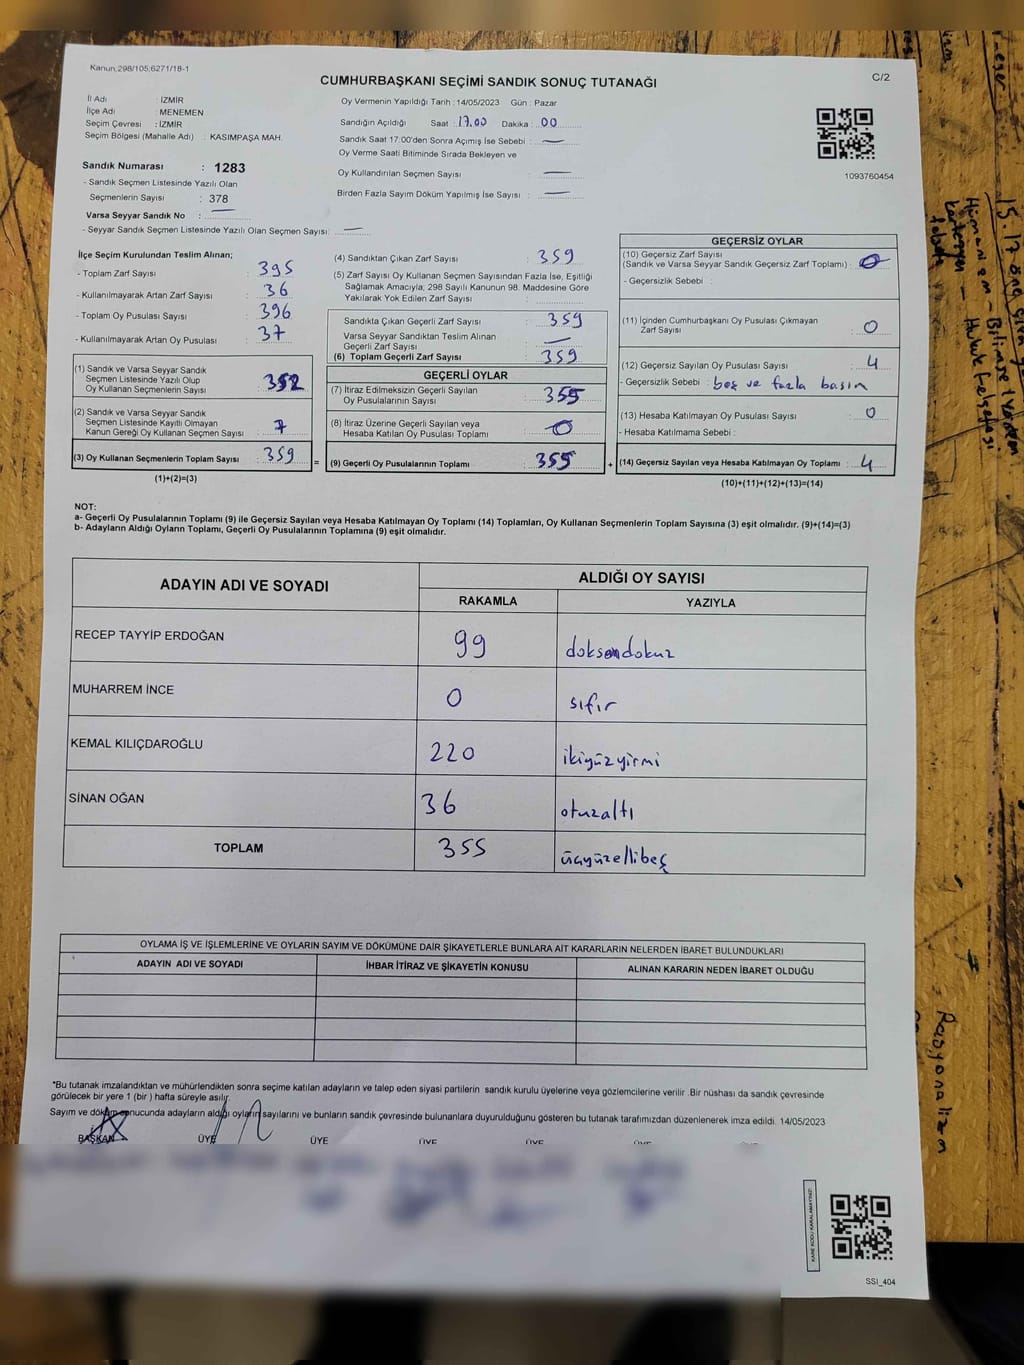 Kanun,298/105,6271/18-1
CUMHURBAŞKANI SEÇİMİ SANDIK SONUÇ TUTANAĞI
C/2
İl Adı : İZMİR
İlçe Adı : MENEMEN
Seçim Çevresi : İZMİR
Seçim Bölgesi (Mahalle Adı) : KASIMPAŞA MAH.
Sandık Numarası : 1283
- Sandık Seçmen Listesinde Yazılı Olan
Seçmenlerin Sayısı : 378
Varsa Seyyar Sandık No : —
- Seyyar Sandık Seçmen Listesinde Yazılı Olan Seçmen Sayısı: —
Oy Vermenin Yapıldığı Tarih : 14/05/2023 Gün : Pazar
Sandığın Açıldığı Saat : 17.00 Dakika : 00
Sandık Saat 17:00'den Sonra Açımış İse Sebebi : —
Oy Verme Saati Bitiminde Sırada Bekleyen ve
Oy Kullandırılan Seçmen Sayısı : —
Birden Fazla Sayım Döküm Yapılmış İse Sayısı : —
1093760454
İlçe Seçim Kurulundan Teslim Alınan;
- Toplam Zarf Sayısı 395
- Kullanılmayarak Artan Zarf Sayısı 36
- Toplam Oy Pusulası Sayısı 396
- Kullanılmayarak Artan Oy Pusulası 37
(1) Sandık ve Varsa Seyyar Sandık
Seçmen Listesinde Yazılı Olup
Oy Kullanan Seçmenlerin Sayısı : 352
(2) Sandık ve Varsa Seyyar Sandık
Seçmen Listesinde Kayıtlı Olmayan
Kanun Gereği Oy Kullanan Seçmen Sayısı : 7
(3) Oy Kullanan Seçmenlerin Toplam Sayısı : 359
(1)+(2)=(3)
(4) Sandıktan Çıkan Zarf Sayısı : 359
(5) Zarf Sayısı Oy Kullanan Seçmen Sayısından Fazla İse, Eşitliği
Sağlamak Amacıyla; 298 Sayılı Kanunun 98. Maddesine Göre
Yakılarak Yok Edilen Zarf Sayısı :
Sandıkta Çıkan Geçerli Zarf Sayısı : 359
Varsa Seyyar Sandıktan Teslim Alınan
Geçerli Zarf Sayısı : —
(6) Toplam Geçerli Zarf Sayısı : 359
GEÇERLİ OYLAR
(7) İtiraz Edilmeksizin Geçerli Sayılan
Oy Pusulalarının Sayısı : 355
(8) İtiraz Üzerine Geçerli Sayılan veya
Hesaba Katılan Oy Pusulası Toplamı : 0
= (9) Geçerli Oy Pusulalarının Toplamı : 355 +
GEÇERSİZ OYLAR
(10) Geçersiz Zarf Sayısı
(Sandık ve Varsa Seyyar Sandık Geçersiz Zarf Toplamı) : 0
- Geçersizlik Sebebi :
(11) İçinden Cumhurbaşkanı Oy Pusulası Çıkmayan
Zarf Sayısı : 0
(12) Geçersiz Sayılan Oy Pusulası Sayısı : 4
- Geçersizlik Sebebi : boş ve fazla basım
(13) Hesaba Katılmayan Oy Pusulası Sayısı : 0
- Hesaba Katılmama Sebebi :
(14) Geçersiz Sayılan veya Hesaba Katılmayan Oy Toplamı : 4
(10)+(11)+(12)+(13)=(14)
NOT:
a- Geçerli Oy Pusulalarının Toplamı (9) ile Geçersiz Sayılan veya Hesaba Katılmayan Oy Toplamı (14) Toplamları, Oy Kullanan Seçmenlerin Toplam Sayısına (3) eşit olmalıdır. (9)+(14)=(3)
b- Adayların Aldığı Oyların Toplamı, Geçerli Oy Pusulalarının Toplamına (9) eşit olmalıdır.
ADAYIN ADI VE SOYADI ALDIĞI OY SAYISI
RAKAMLA YAZIYLA
RECEP TAYYİP ERDOĞAN 99 doksandokuz
MUHARREM İNCE 0 sıfır
KEMAL KILIÇDAROĞLU 220 ikiyüzyirmi
SİNAN OĞAN 36 otuzaltı
TOPLAM 355 üçyüzellibeş
OYLAMA İŞ VE İŞLEMLERİNE VE OYLARIN SAYIM VE DÖKÜMÜNE DAİR ŞİKAYETLERLE BUNLARA AİT KARARLARIN NELERDEN İBARET BULUNDUKLARI
ADAYIN ADI VE SOYADI İHBAR İTİRAZ VE ŞİKAYETİN KONUSU ALINAN KARARIN NEDEN İBARET OLDUĞU
*Bu tutanak imzalandıktan ve mühürlendikten sonra seçime katılan adayların ve talep eden siyasi partilerin sandık kurulu üyelerine veya gözlemcilerine verilir. Bir nüshası da sandık çevresinde
görülecek bir yere 1 (bir) hafta süreyle asılır.
Sayım ve döküm sonucunda adayların aldığı oyların sayılarını ve bunların sandık çevresinde bulunanlara duyurulduğunu gösteren bu tutanak tarafımızdan düzenlenerek imza edildi. 14/05/2023
BAŞKAN ÜYE ÜYE ÜYE ÜYE ÜYE
KARE KODU KARALAMAYINIZ!
SSİ_404
Rasyonalizm